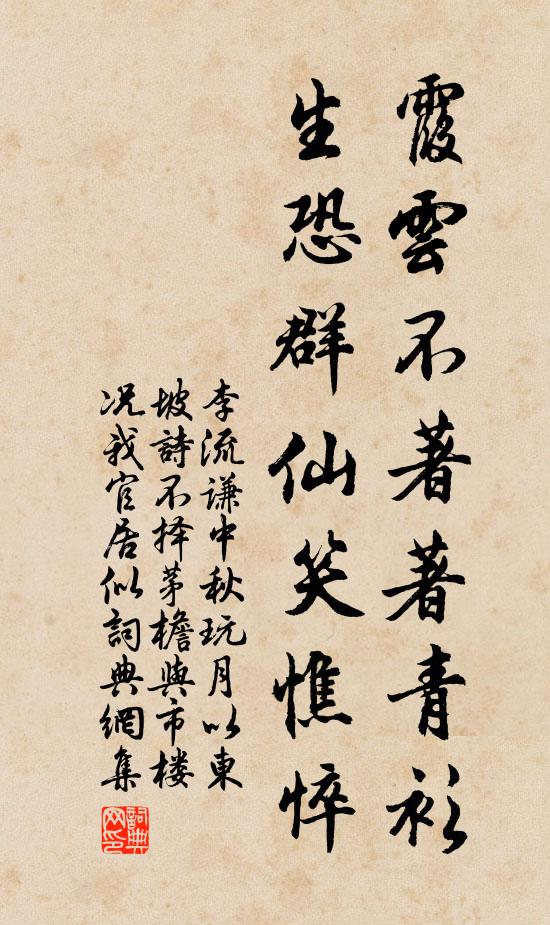 霞雲不著著青衫
生恐群仙笑憔悴
李流谦中秋玩月以東
坡詩不择茅檐與市楼
况我官居似詞典網集
詞典网印